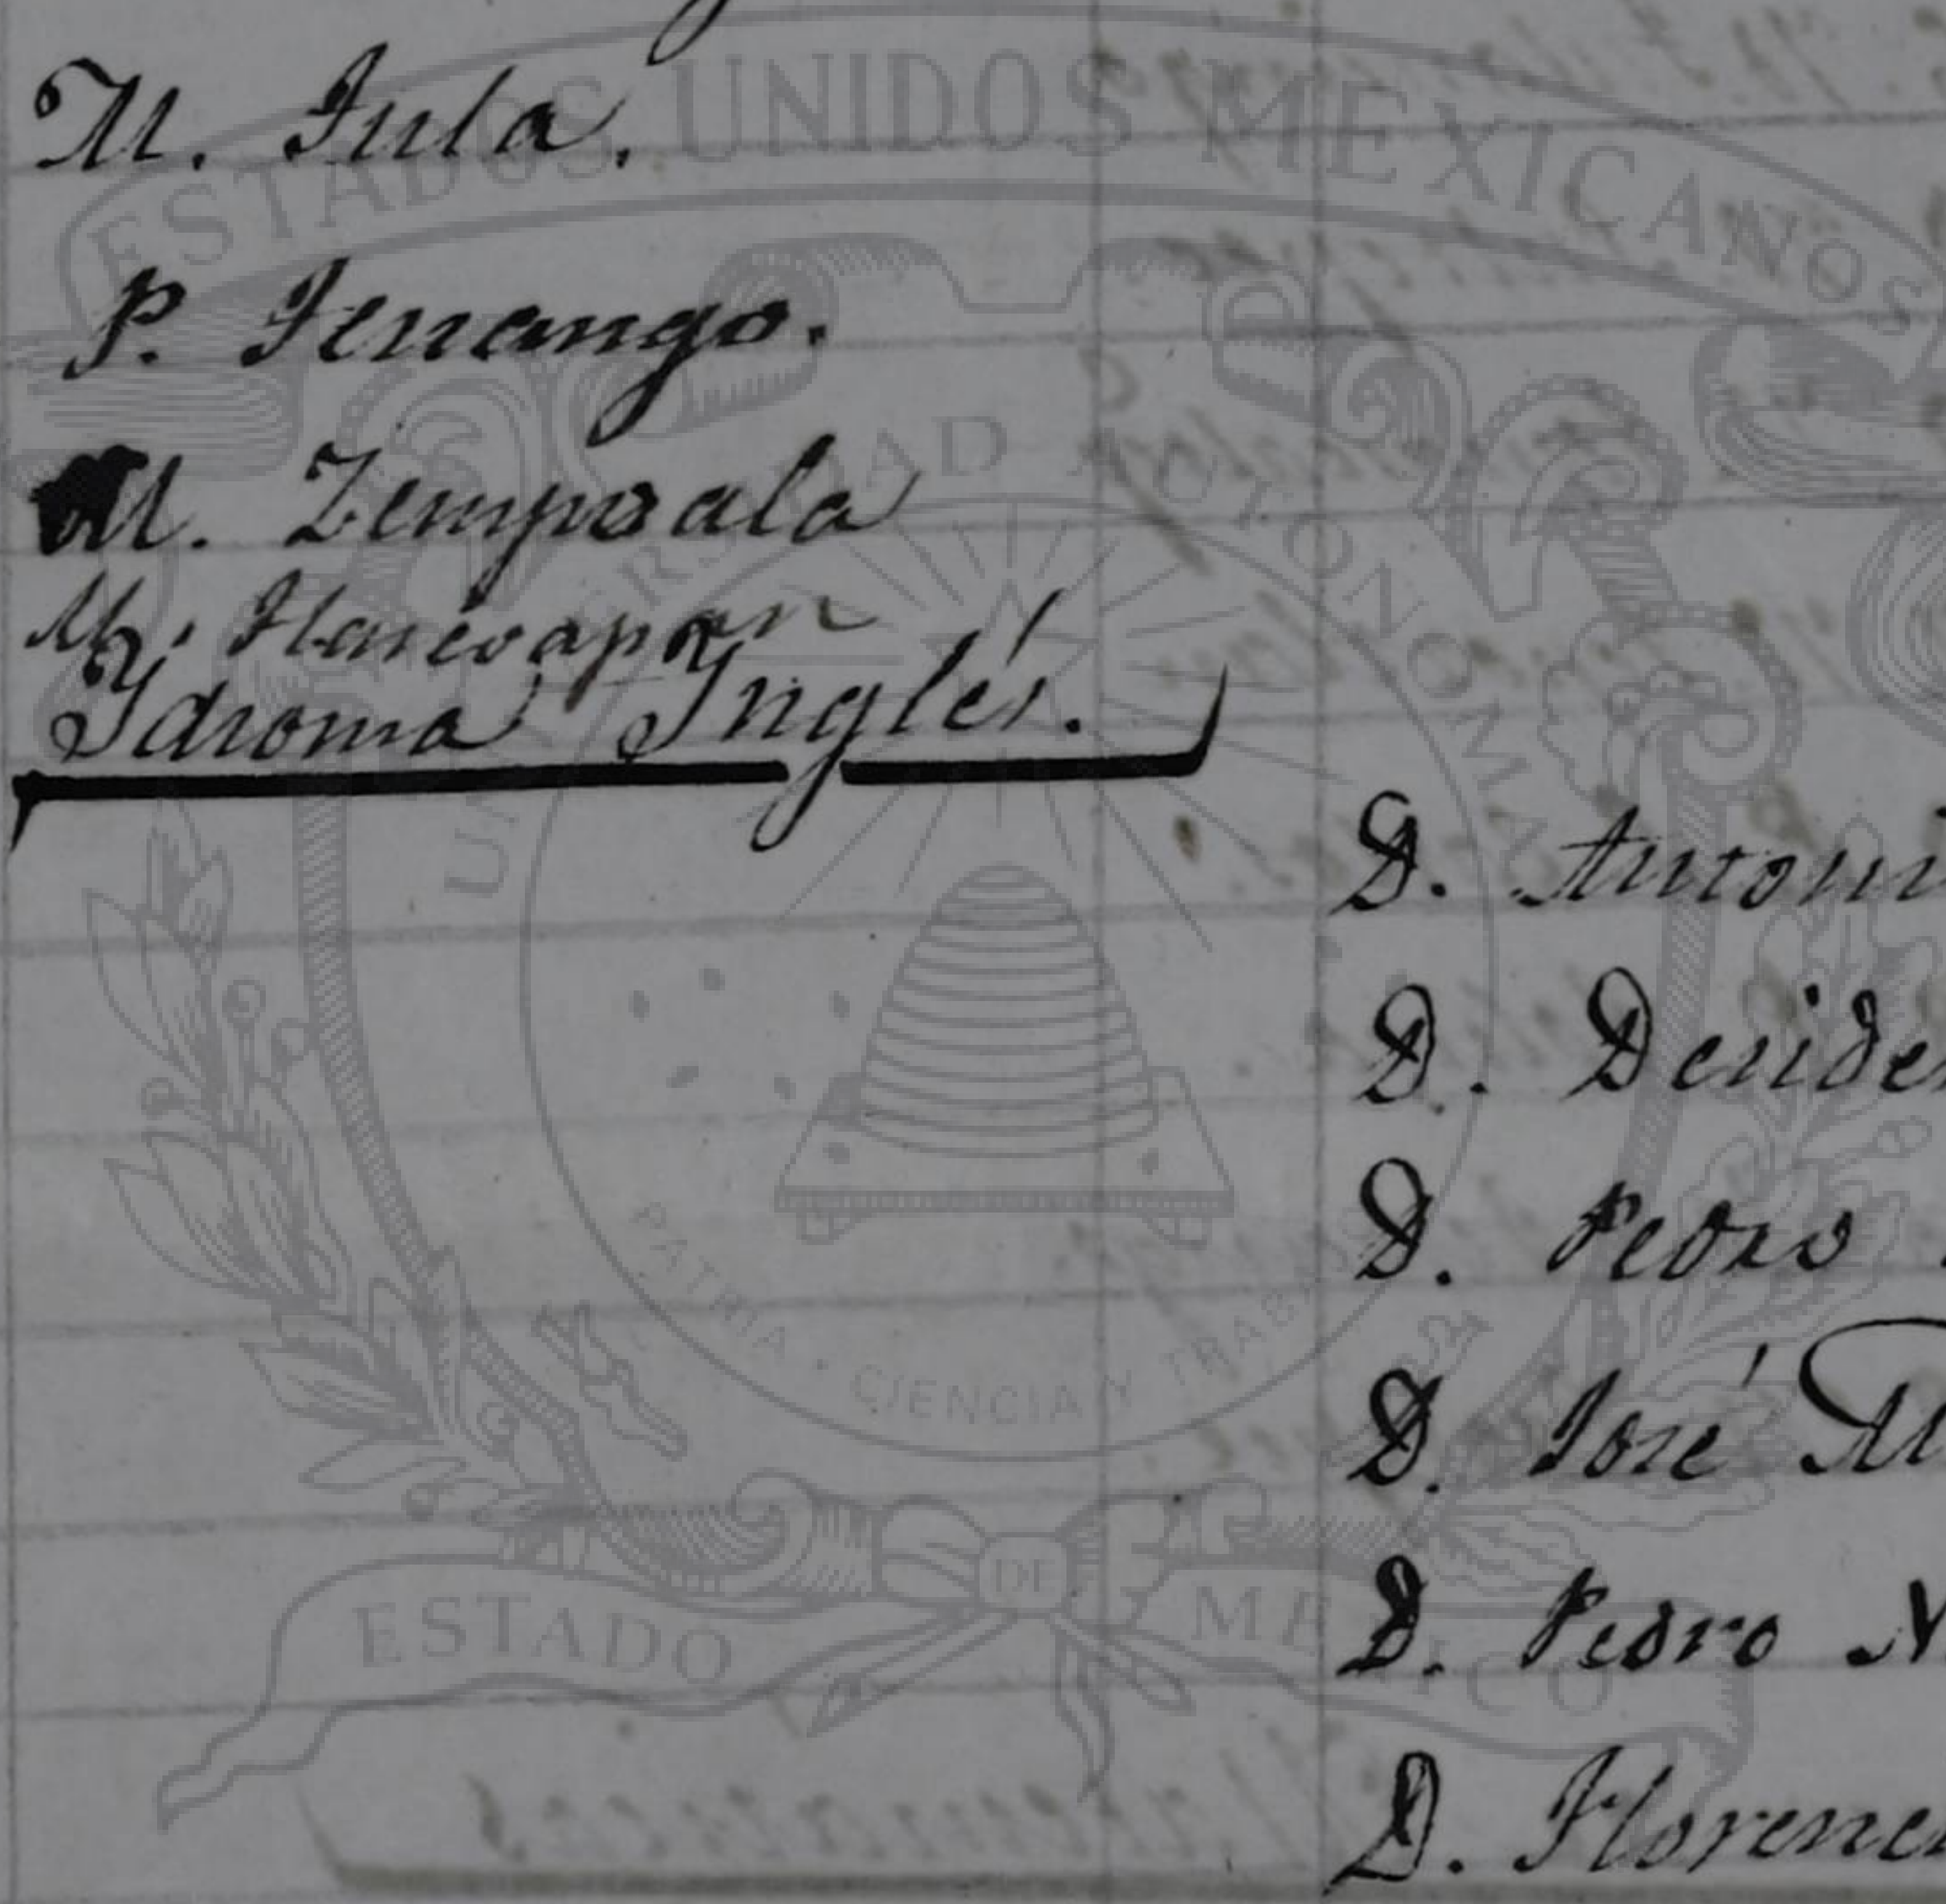 M. Tula.
P. Tenango.
M. Zempoala
M. Tlascoapan
Idioma Inglés.
D. Antoni
D. Desider
D. Pedro
D. José M
D. Pedro N
D. Florenci
ESTADOS UNIDOS MEXICANOS
PATRIA · CIENCIA Y TRABA
ESTADO DE MEXICO